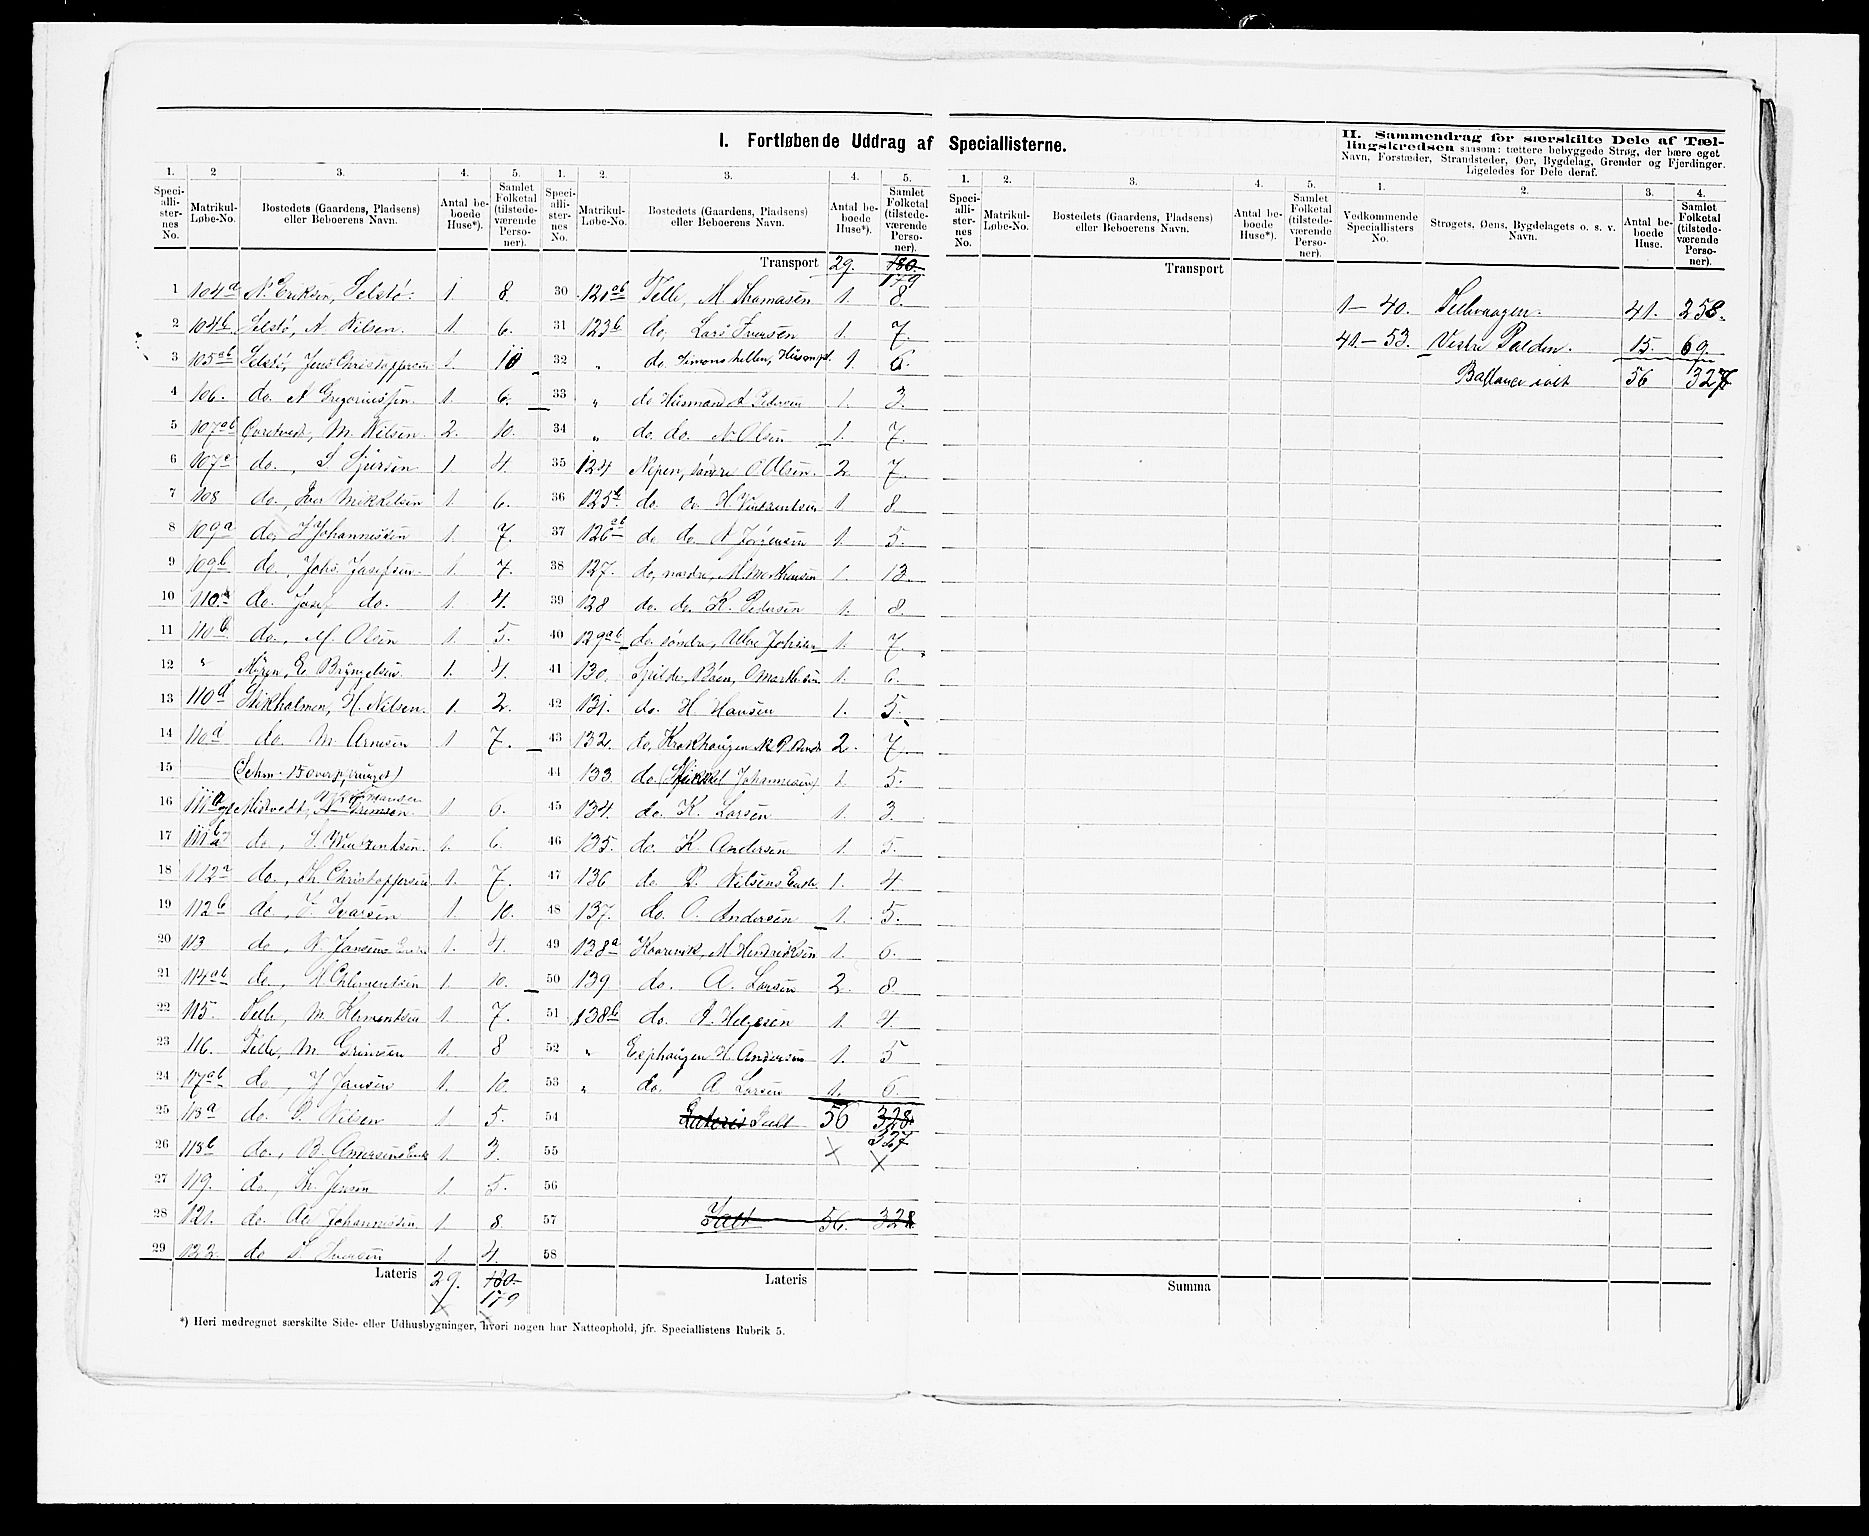 I. Fortløbende Uddrag af Speciallisterne.
II. Sammendrag for særskilte Dele af Tællingskredsen saasom: tættere bebyggede Strøg, der bære eget Navn, Forstæder, Strandsteder, Øer, Bygdelag, Grender og Fjerdinger. Ligeledes for Dele deraf.
1. 2 3. 4. 5. 1. 2. 3. 4. 5. 1. 2. 3. 4. 5. 1. 2. 3. 4.
Speciallisternes No. Matrikul-Løbe-No. Bostedets (Gaardens, Pladsens) eller Beboerens Navn. Antal beboede Huse*). Samlet Folketal (tilstedeværende Personer).
Speciallisternes No. Matrikul-Løbe-No. Bostedets (Gaardens, Pladsens) eller Beboerens Navn. Antal beboede Huse*). Samlet Folketal (tilstedeværende Personer).
Speciallisternes No. Matrikul-Løbe-No. Bostedets (Gaardens, Pladsens) eller Beboerens Navn. Antal beboede Huse*). Samlet Folketal (tilstedeværende Personer).
Vedkommende Speciallisters No. Strøgets, Øens, Bygdelagets o. s. v. Navn. Antal beboede Huse. Samlet Folketal (tilstedeværende Personer).
1 104a N. Eriksen, Selstø. 1 8.
2 104b Selstø, A. Nilsen. 1. 6.
3 105ab Selstø, Jens Christoffersen 1. 10
4 106. do. A Gregoriussen 1. 6.
5 107ab Qvedtvedt, M. Nilsen. 2. 10.
6 107c do., S Sjursen 1 4.
7 108 do, Iver Mikkelsen 1 6.
8 109a do, J Johannessen 1. 7.
9 109b do., Johs. Josefsen. 1. 4.
10 110a do. Josef do. 1. 4.
11 110b do., M. Olsen 1. 5.
12 " Myren, E. Bryngelsen. 1. 4.
13 110d Stikholmen, H. Nilsen. 1. 2.
14 110d do. M. Arnesen 1 7.
15 (Schm. 15 oversprunget)
16 Mistvedt, 1 6.
17 do, 1. 6.
18 112a do., Th. Christoffersen 1. 7.
19 112b do, J. Ivarsen 1. 10.
20 113 do, N. Jansens Enke 1. 4.
21 114ab do., H Chlementsen 1. 10.
22 115. Telle, M. Klementsen 1. 7.
23 116. Telle, M Grimsen 1. 8
24 117ab do, J Jansen 1. 10.
25 118a do. P. Nilsen 1 5.
26 118b do., B. Andersens Enke 1. 3.
27 119. do, Th. Jensen 1. 5.
28 121. do. Ole Johannessen 1 8.
29 122. do S. Iversen 1 4.
Lateris 29. 180. 179
Transport 29. 180. 179
30 121ab Telle, M Thomasen 1. 8.
31 123b do, Lars Iversen 1. 7.
32 " do. Simonshellen, Husmpl. 1. 6.
33 " do Husmand A Pedersen 1. 3.
34 " do. do. N Olsen 1. 7.
35 124 Nepen, søndre O Olsen. 2. 7.
36 125b do. do. H Vintzentsen 1 8
37 126ab do do. A Jørensen 1. 5.
38 127. do, nordre, M. Mortensen 1. 13.
39 128 do. do. K. Pedersen 1. 8.
40 129ab do søndre, Johs.sen 1. 7.
41 130. Spilde 1. 6.
42 131. do. H Hansen 1. 5.
43 132. do, Krakhaugen 2. 7.
44 133. do. (Mikkel Johannesen) 1. 5.
45 134. do. K. Larsen 1. 3.
46 135. do. K Andersen 1. 5.
47 136 do P. Nilsens Enke 1. 4.
48 137. do. O. Andersen 1. 5.
49 138a Kaarevik, M Hendriksen 1. 6.
50 139 do. A. Larsen 2. 8.
51 138b do. A. Helgesen 1. 4.
52 " Esphaugen H. Andersen 1. 5
53 " do. A Larsen 1. 6.
54 Lateris Ialt 56 328. 327
55
56
57 Ialt 56. 328
58
Lateris
Transport
Summa
1 – 40. Sellevaagen. 41. 258.
41. – 53. Vestre Polden. 15 69.
Ballance ialt 56 327
*) Heri medregnet særskilte Side- eller Udhusbygninger, hvori nogen har Natteophold, jfr. Speciallistens Rubrik 5.